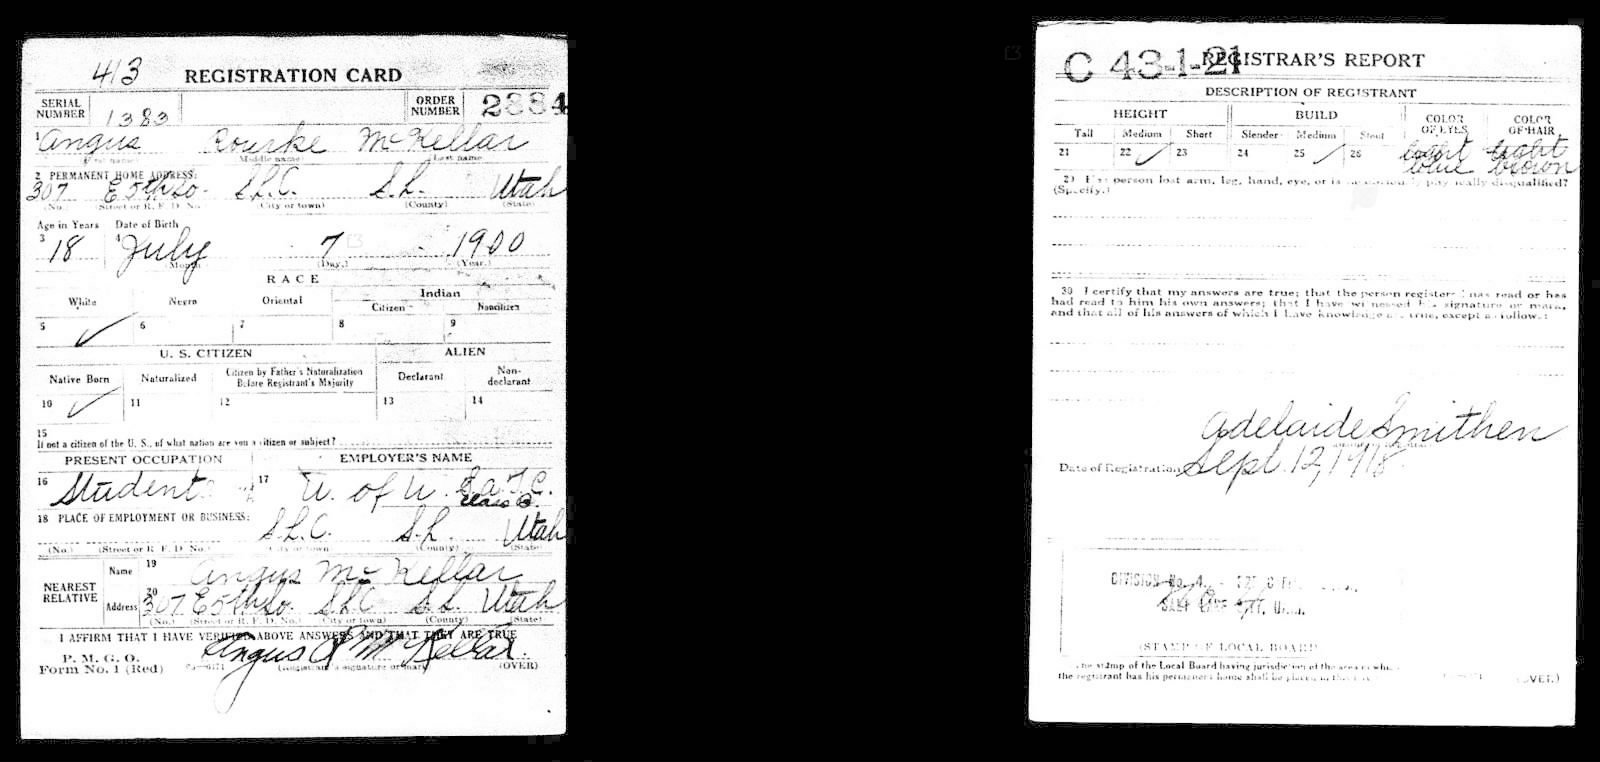 413 REGISTRATION CARD
SERIAL NUMBER 1383 ORDER NUMBER 2334
1 Angus Rourke McKellar
(First name) (Middle name) (Last name)
2 PERMANENT HOME ADDRESS:
307 E 5th So. S.L.C. S.L. Utah
(No.) (Street or R. F. D. No.) (City or town) (County) (State)
Age in Years Date of Birth
3 18 4 July 7 1900
(Month) (Day.) (Year.)
RACE
White Negro Oriental Indian
Citizen Noncitizen
5 ✓ 6 7 8 9
U. S. CITIZEN ALIEN
Native Born Naturalized Citizen by Father's Naturalization Before Registrant's Majority Declarant Non-declarant
10 ✓ 11 12 13 14
15
If not a citizen of the U. S., of what nation are you a citizen or subject?
PRESENT OCCUPATION EMPLOYER'S NAME
16 Student 17 U. of U. S.a.T.C.
18 PLACE OF EMPLOYMENT OR BUSINESS:
S.L.C. S.L. Utah
(No.) (Street or R. F. D. No.) (City or town) (County) (State)
NEAREST RELATIVE Name 19 Angus McKellar
Address 20 307 E 5th So. S.L.C S.L. Utah
(No.) (Street or R. F. D. No.) (City or town) (County) (State)
I AFFIRM THAT I HAVE VERIFIED ABOVE ANSWERS AND THAT THEY ARE TRUE
P. M. G. O.
Form No. 1 (Red) Angus R McKellar.
(Registrant's signature or mark) (OVER)
C 43-1-21 REGISTRAR'S REPORT
DESCRIPTION OF REGISTRANT
HEIGHT BUILD COLOR OF EYES COLOR OF HAIR
Tall Medium Short Slender Medium Stout
21 22 ✓ 23 24 25 ✓ 26 light blue light brown
29 Has person lost arm, leg, hand, eye, or is he obviously physically disqualified?
(Specify.)
30 I certify that my answers are true; that the person registered has read or has
had read to him his own answers; that I have witnessed his signature or mark,
and that all of his answers of which I have knowledge are true, except as follows:
Adelaide Smithen
Date of Registration Sept. 12, 1918
DIVISION No. 4
SALT LAKE CITY, UTAH.
(STAMP OF LOCAL BOARD)
The stamp of the Local Board having jurisdiction of the area in which
the registrant has his permanent home shall be placed in this box.
(OVER)